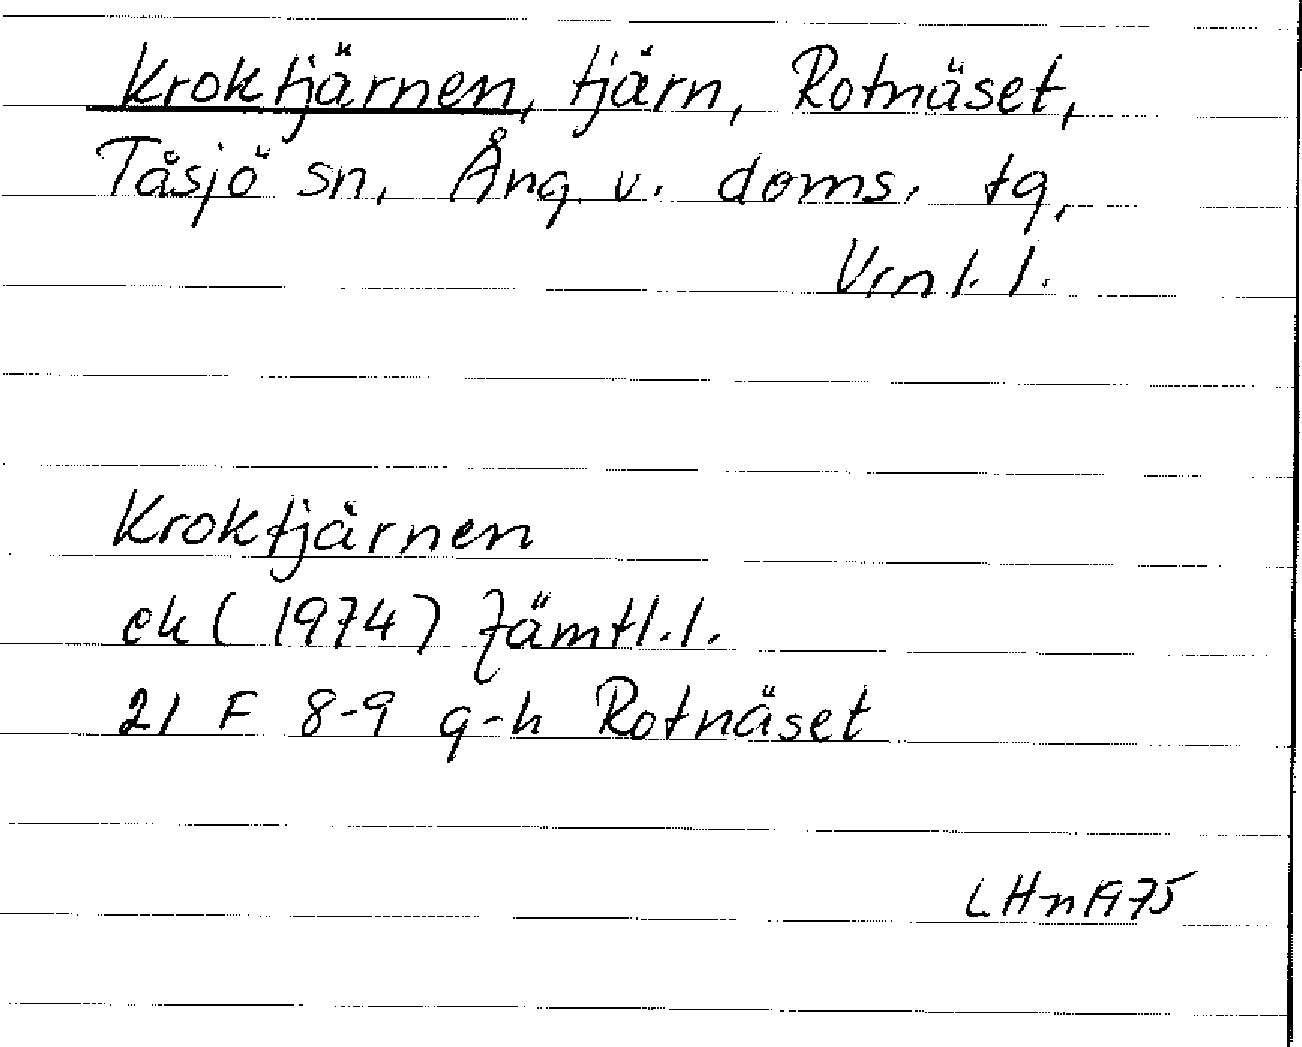 Kroktjärnen, tjärn, Rotnäset,
Tåsjö sn, Ång. v. doms. tg,
Vrnl. l.
Kroktjärnen
ek (1974) Jämtl. l.
21 F 8-9 g-h Rotnäset
LHn 1975